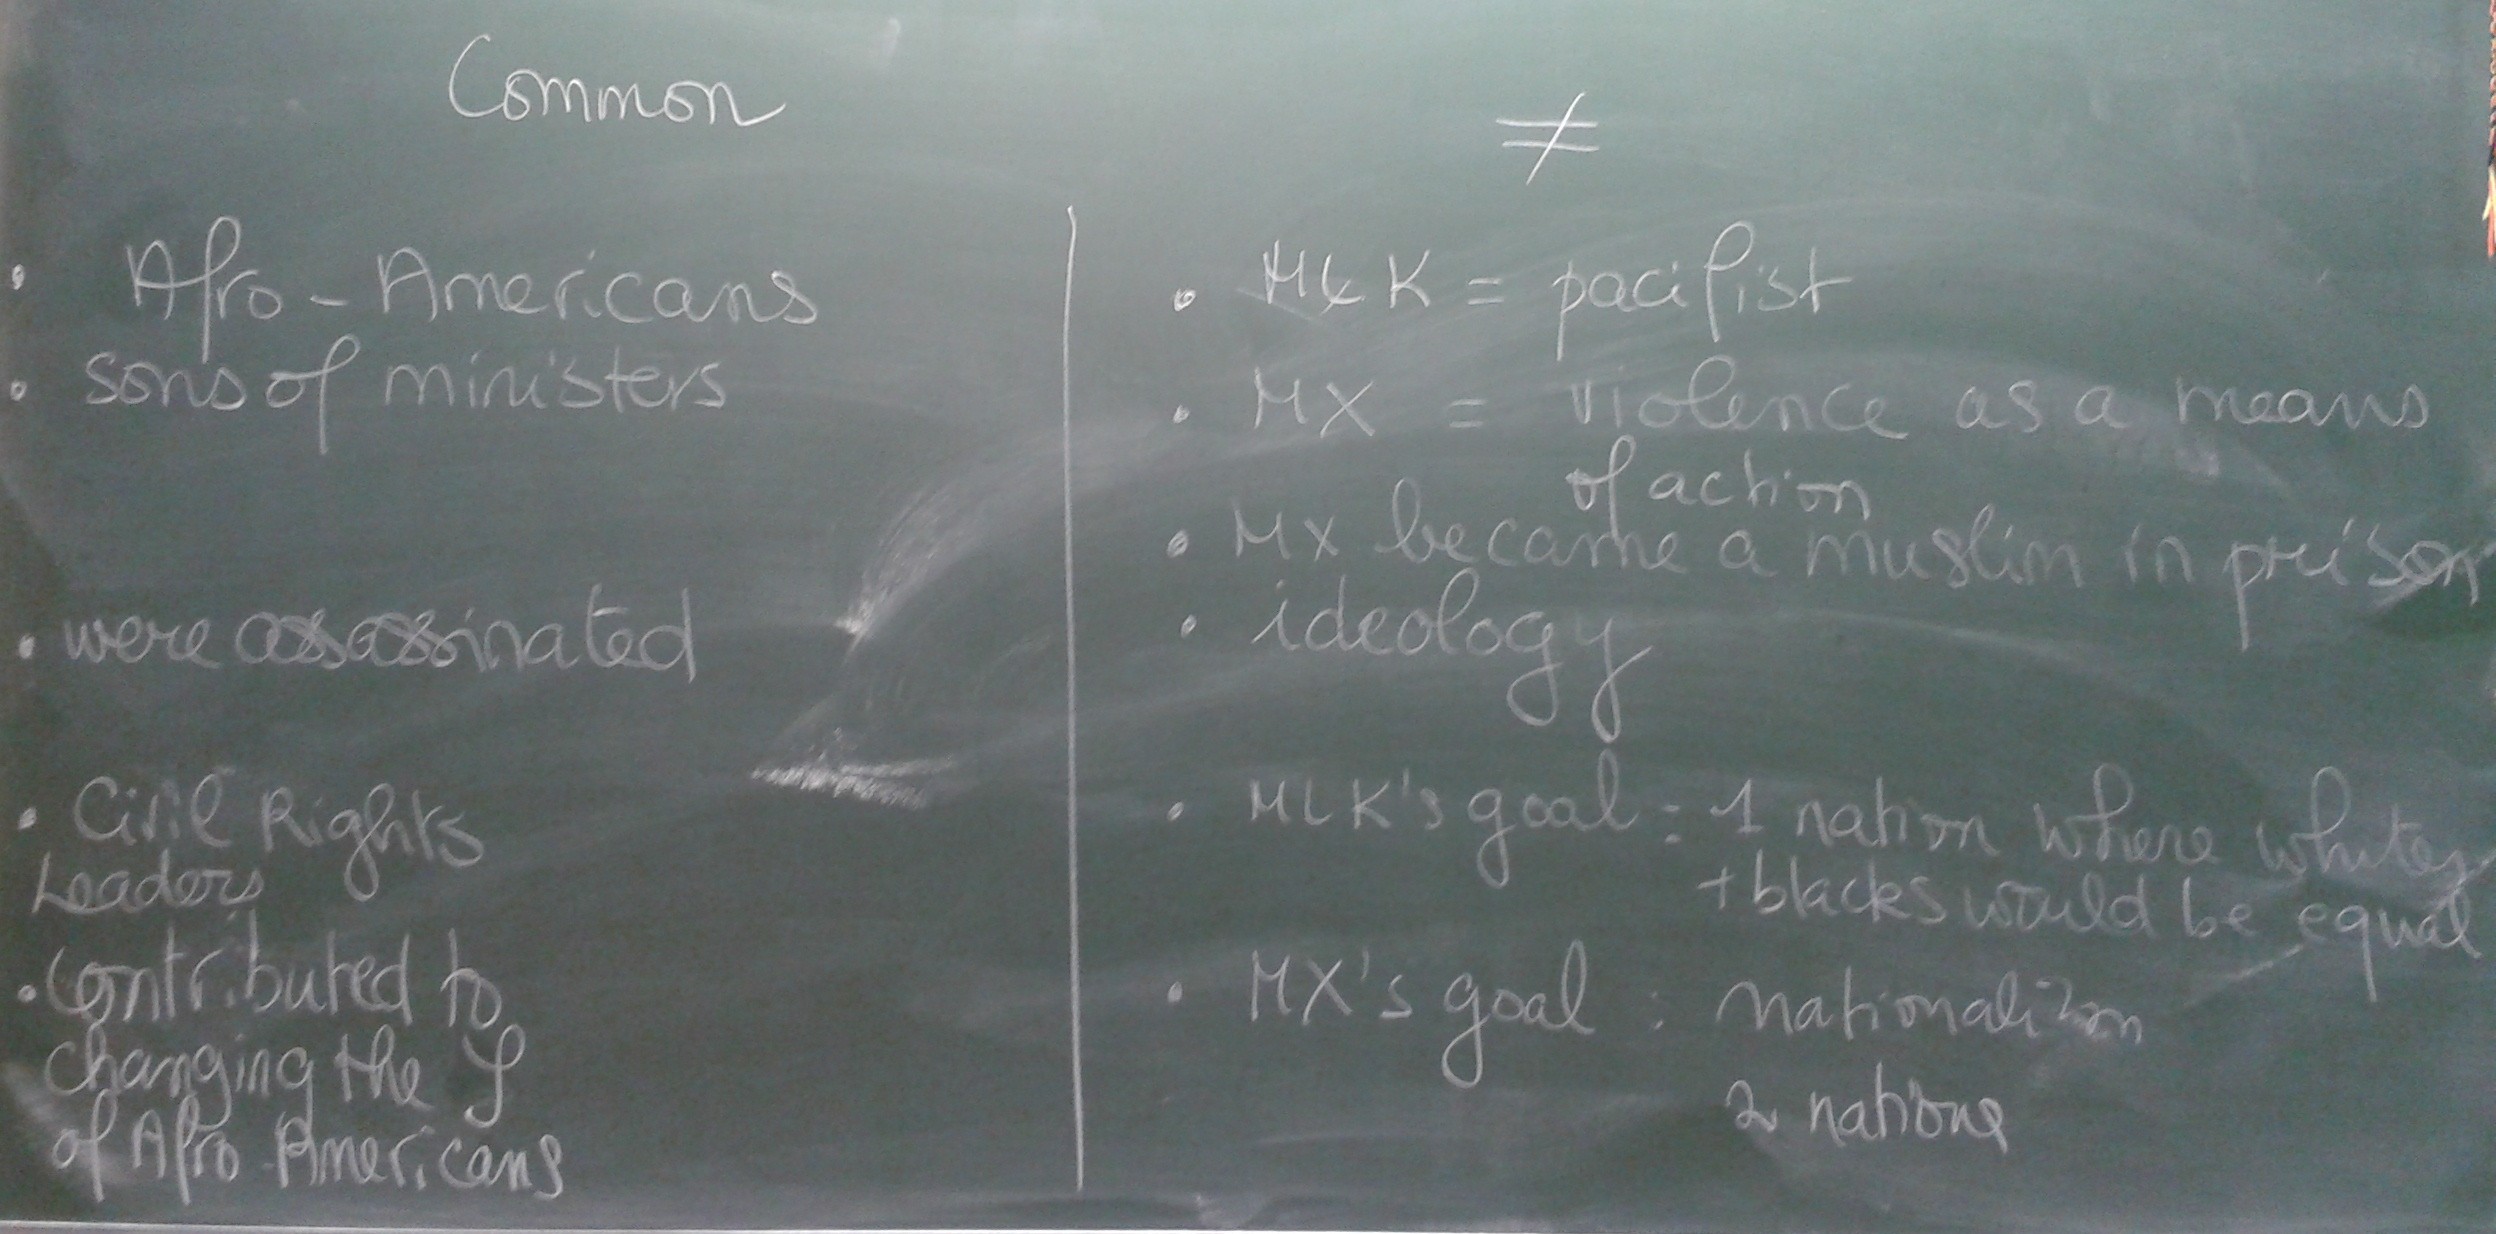 Common
• Afro-Americans
• sons of ministers
• were assassinated
• Civil Rights
Leaders
• Contributed to
changing the
of Afro-Americans
≠
• MLK = pacifist
• MX = violence as a means
of action
• MX became a muslim in prison
• ideology
• MLK's goal : 1 nation where whites
+ blacks would be equal
• MX's goal : nationalism
2 nations